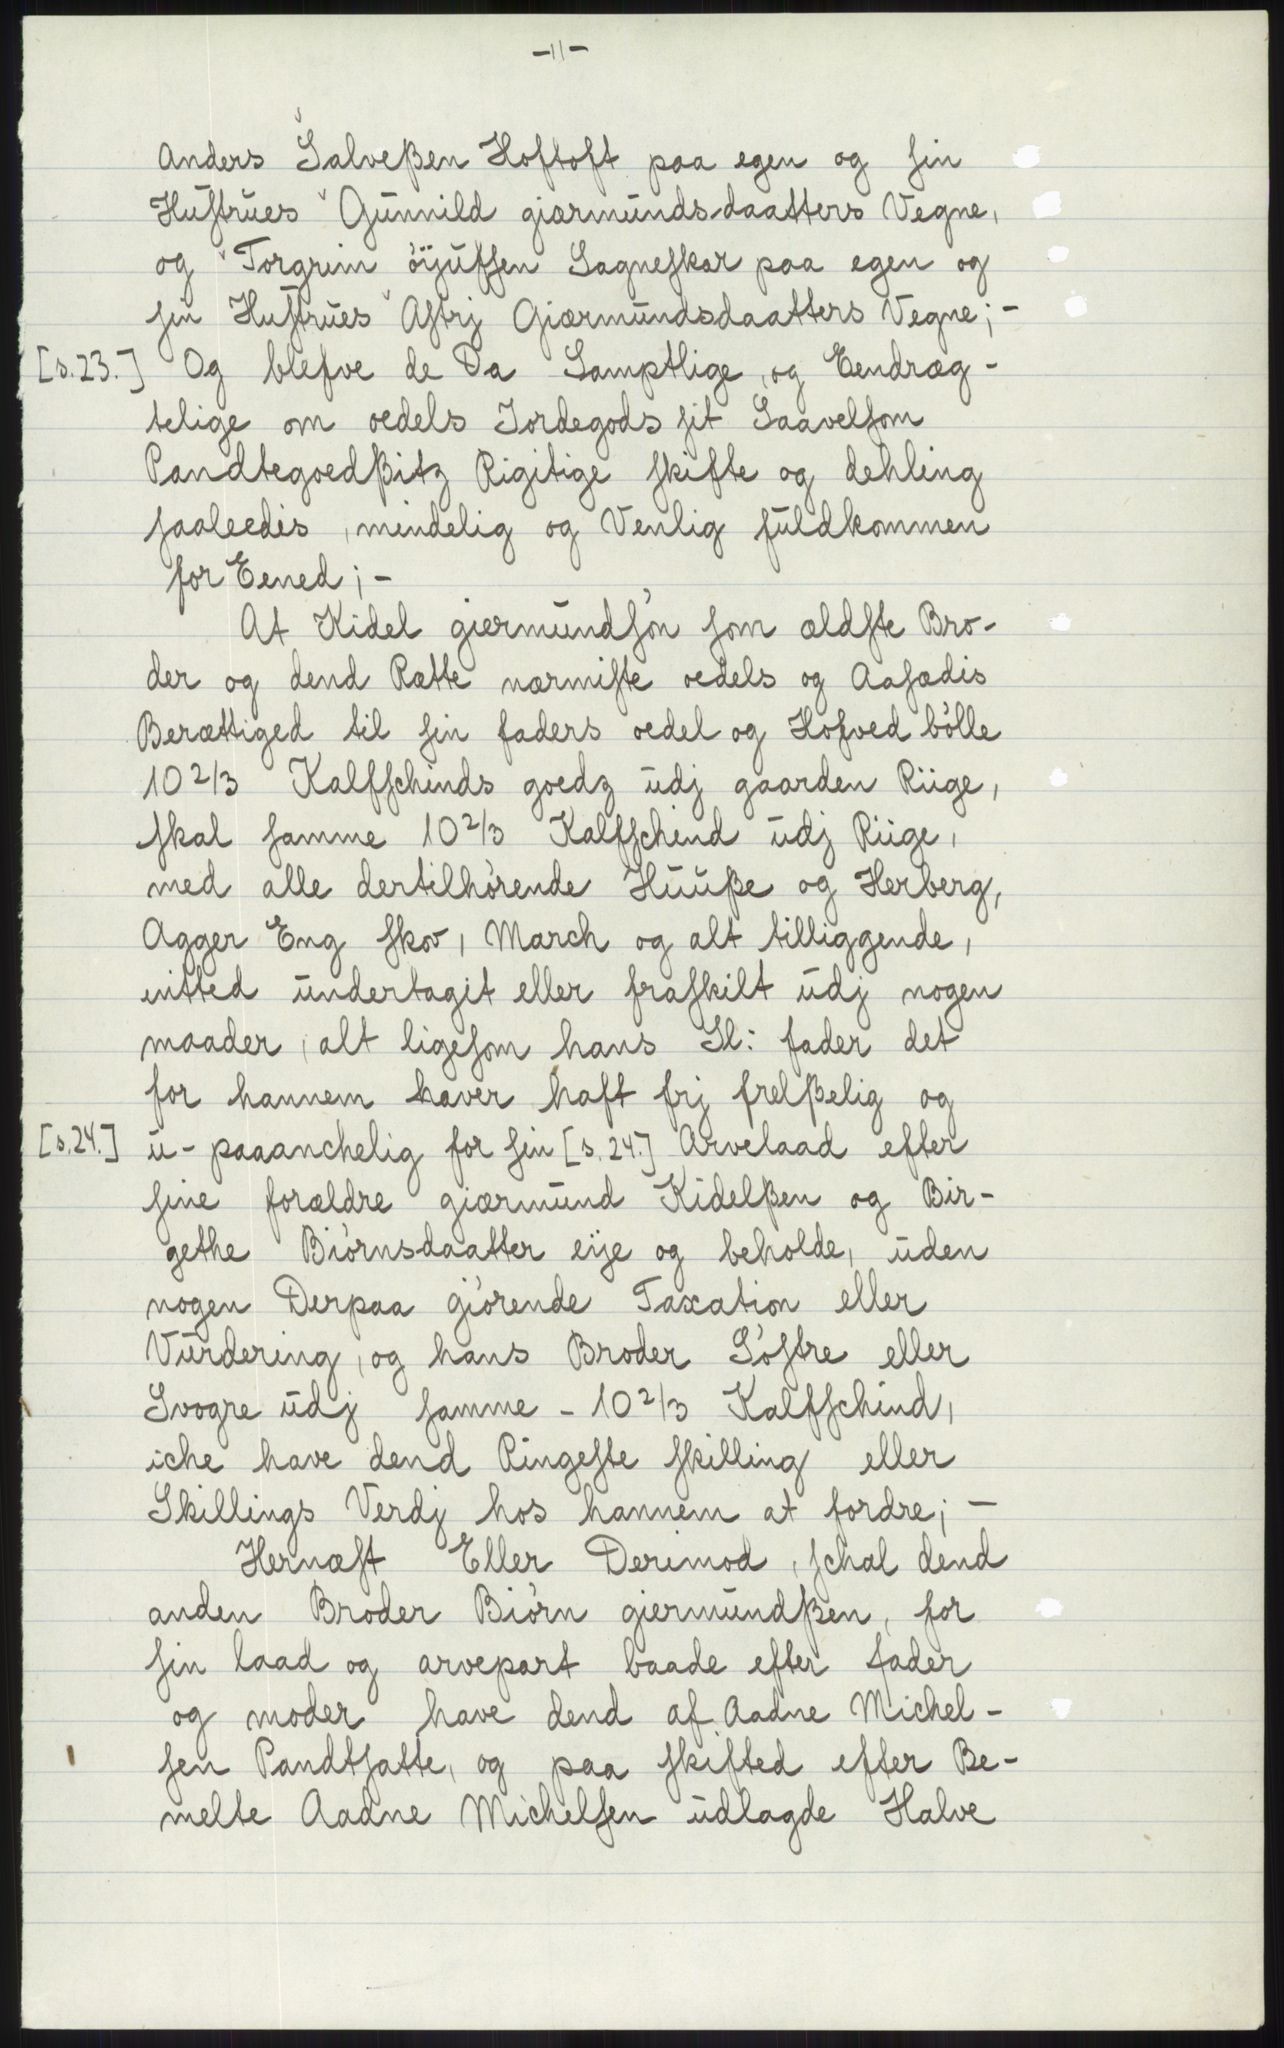 -11-
Anders Salveßen Hoftoft paa egen og sin
Hustrues Gunnild giærmunds-daatters Vegne,
og Torgrim öÿufsen Sagneskar paa egen og
sin Hustrues Astrj Giærmundsdaatters Vegne; -
[s. 23.] Og blefve de Da Samptlige, og Eendræg-
telige om oedels Jordegods sit Saavelsom
Pandtegoedßitz Rigitige skifte og dehling
saaledis, mindelig og Venlig fuldkommen
for Eened; -
At Kidel giermundsøn som ældste Bro-
der og dend Rætte nærmiste oedels og Aasædis
Berættiged til sin faders oedel og Hofved bølle
10 2/3 Kalfschinds goedz udj gaarden Riige,
skal samme 10 2/3 Kalfschind udj Riige,
med alle dertilhørende Huuße og Herberg,
Agger Eng skov, March og alt tilliggende,
intted undertagit eller fraskilt udj nogen
maader, alt ligesom hans Sl: fader det
for hannem haver haft frj frelßelig og
[s. 24.] u-paaanchelig for sin [s. 24.] Arvelaad efter
sine forældre giærmund Kidelßen og Bir-
gethe Biørnsdaatter eije og beholde, uden
nogen Derpaa giørende Taxation eller
Vurdering, og hans Broder Søstre eller
Svogre udj samme - 10 2/3 Kalfschind,
iche have dend Ringeste skilling eller
Skillings Verdj hos hannem at fordre; -
Hernæst Eller Derimod, schal dend
anden Broder Biørn giermundßen, for
sin laad og arvepart baade efter fader
og moder have dend af Aadne Michel-
sen Pandtsatte, og paa skifted efter Be-
melte Aadne Michelsen udlagde Halve